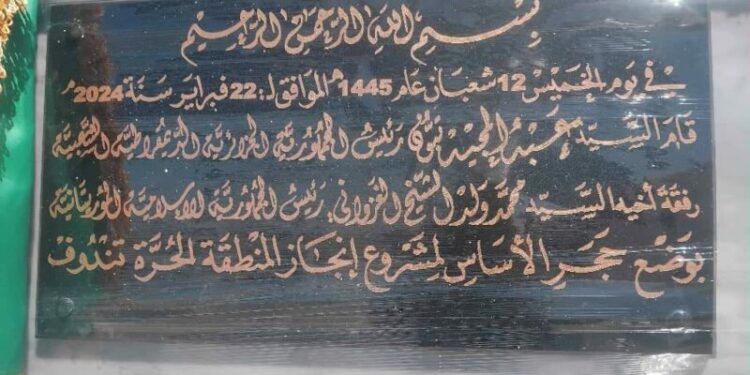 بسم الله الرحمن الرحيم
في يوم الخميس 12 شعبان عام 1445هـ الموافق لـ: 22 فبراير سنة 2024م
قام السيد عبد المجيد تبون رئيس الجمهورية الجزائرية الديمقراطية الشعبية
رفقة أخيه السيد محمد ولد الشيخ الغزواني، رئيس الجمهورية الإسلامية الموريتانية
بوضع حجر الأساس لمشروع إنجاز المنطقة الحرة تندوف